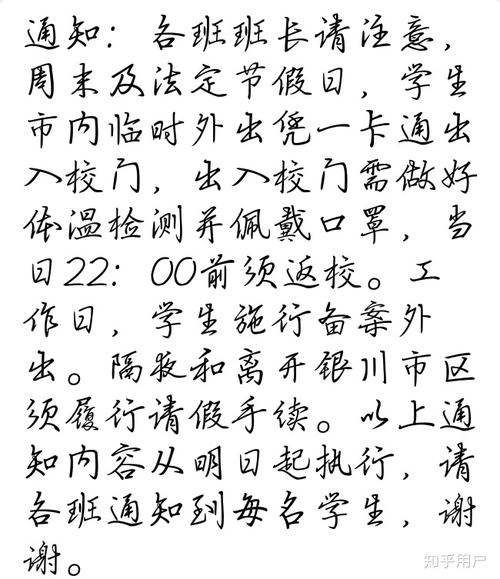 通知：各班班长请注意，
周末及法定节假日，学生
市内临时外出凭一卡通出
入校门，出入校门需做好
体温检测并佩戴口罩，当
日22：00前须返校。工
作日，学生施行备案外
出。隔夜和离开银川市区
须履行请假手续。以上通
知内容从明日起执行，请
各班通知到每名学生，谢
谢。
知乎用户